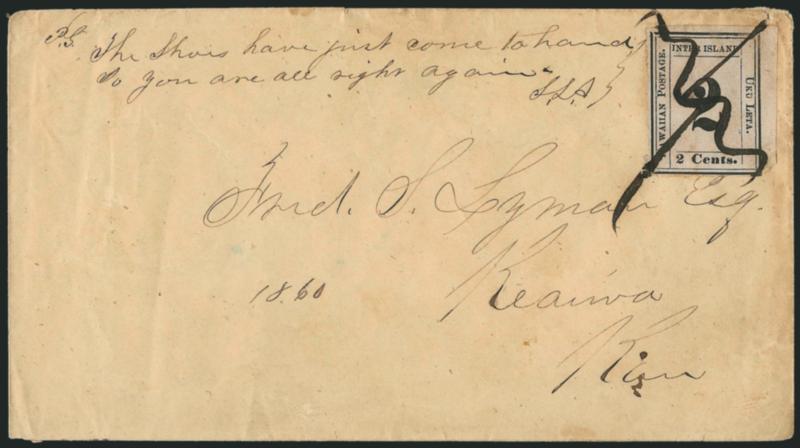 P.S. The Shoes have just come to hand
So you are all right again.
INTER ISLAND
WAIIAN POSTAGE.
UKU LETA.
2
2 Cents.
Fred. S. Lyman Esq.
1860
Keaiwa
Kau